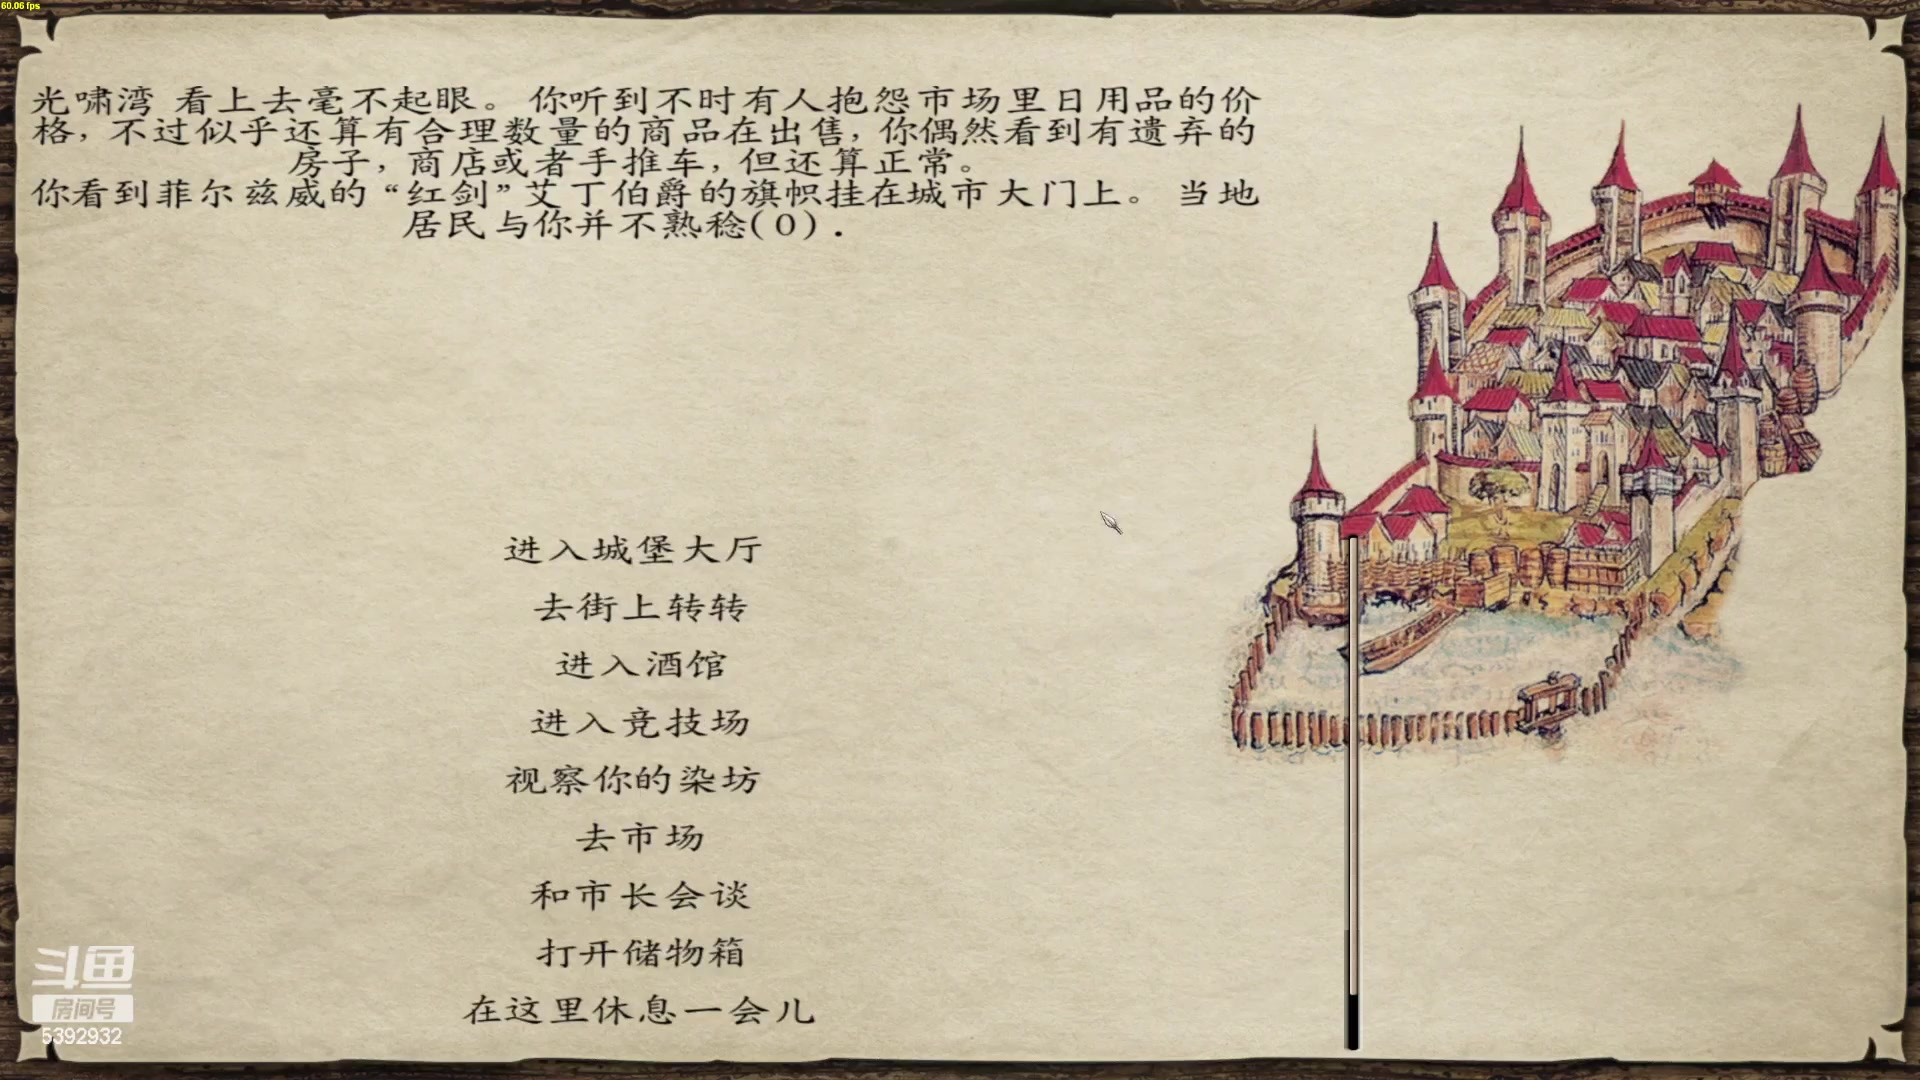 60.06 fps
光啸湾 看上去毫不起眼。 你听到不时有人抱怨市场里日用品的价
格，不过似乎还算有合理数量的商品在出售，你偶然看到有遗弃的
房子，商店或者手推车，但还算正常。
你看到菲尔兹威的“红剑”艾丁伯爵的旗帜挂在城市大门上。 当地
居民与你并不熟稔(0).
进入城堡大厅
去街上转转
进入酒馆
进入竞技场
视察你的染坊
去市场
和市长会谈
打开储物箱
在这里休息一会儿
斗鱼
房间号
5392932